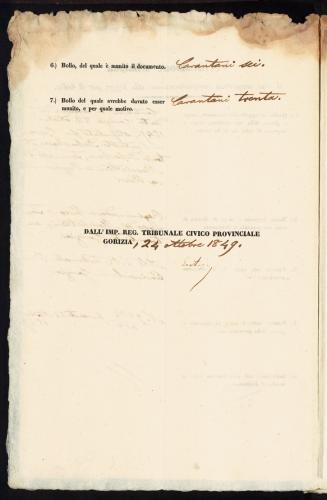 6.) Bollo, del quale è munito il documento. Carantani sei.
7.) Bollo del quale avrebbe dovuto esser Carantani trenta.
munito, e per quale motivo.
DALL' IMP. REG. TRIBUNALE CIVICO PROVINCIALE
GORIZIA, 24 ottobre 1849.